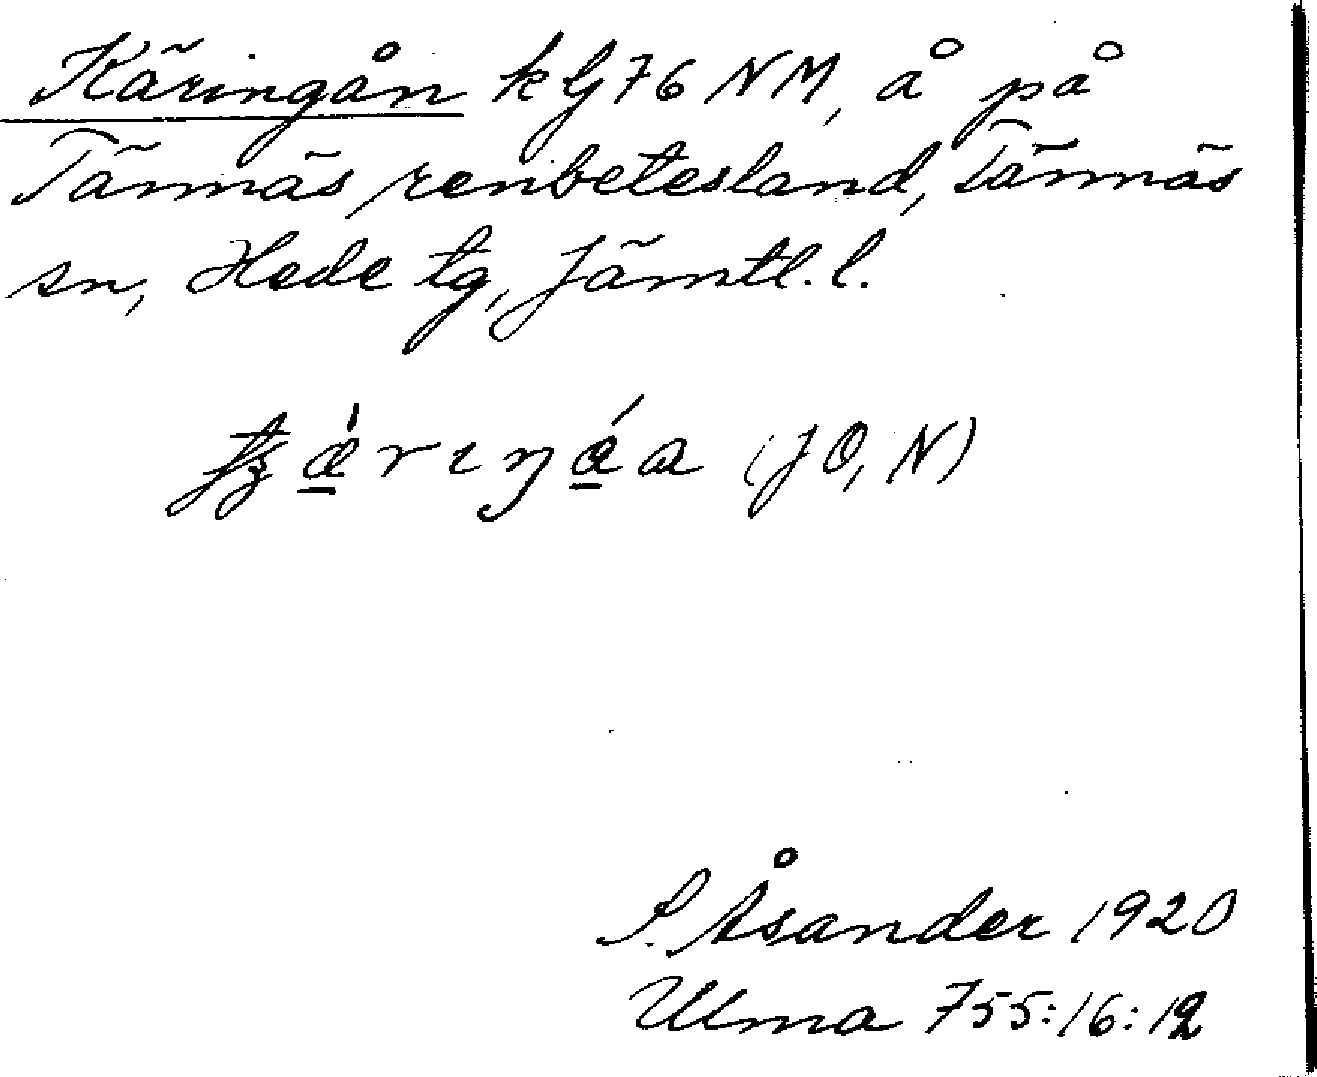 Käringån k G76 NM, å på
Tännäs renbetesland, Tännäs
sn, Hede tg, Jämtl. l.
(JO, N)
S. Åsander 1920
Ulma 755:16:12